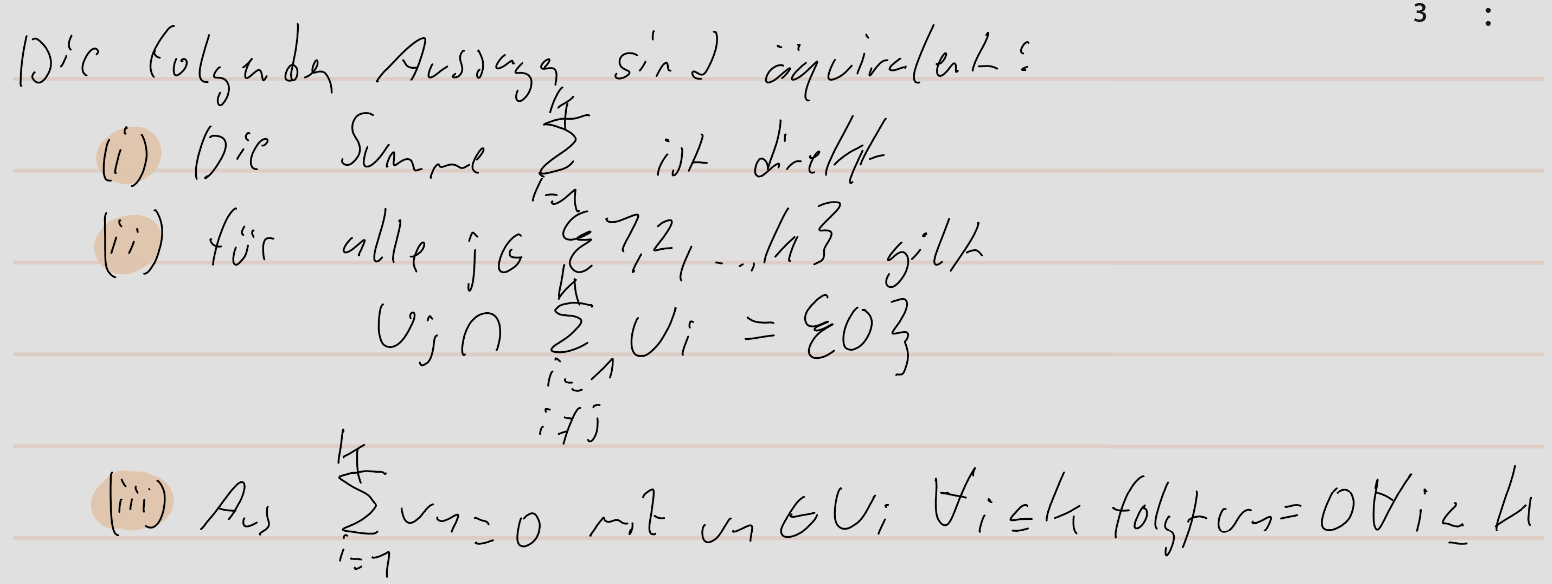 3 :
Die folgenden Aussagen sind äquivalent:
(i) Die Summe ∑_{i=1}^{k} ist direkt
(ii) für alle j ∈ {1,2,...,k} gilt
U_j ∩ ∑_{i=1, i≠j}^{k} U_i = {0}
(iii) Aus ∑_{i=1}^{k} v_1 = 0 mit v_1 ∈ U_i ∀ i ≤ k folgt v_1 = 0 ∀ i ≤ k